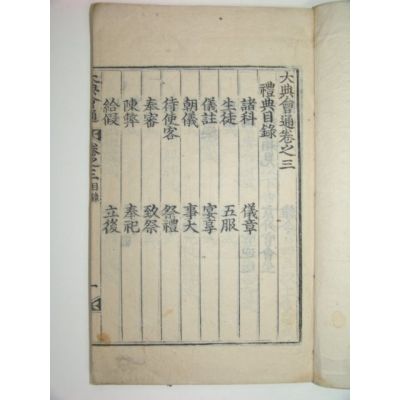 大典會通卷之三
禮典目錄
諸科 儀章
生徒 五服
儀註 宴享
朝儀 事大
待使客 祭禮
奉審 致祭
陳弊 奉祀
給假 立後
大典會通 卷之三 目錄 一